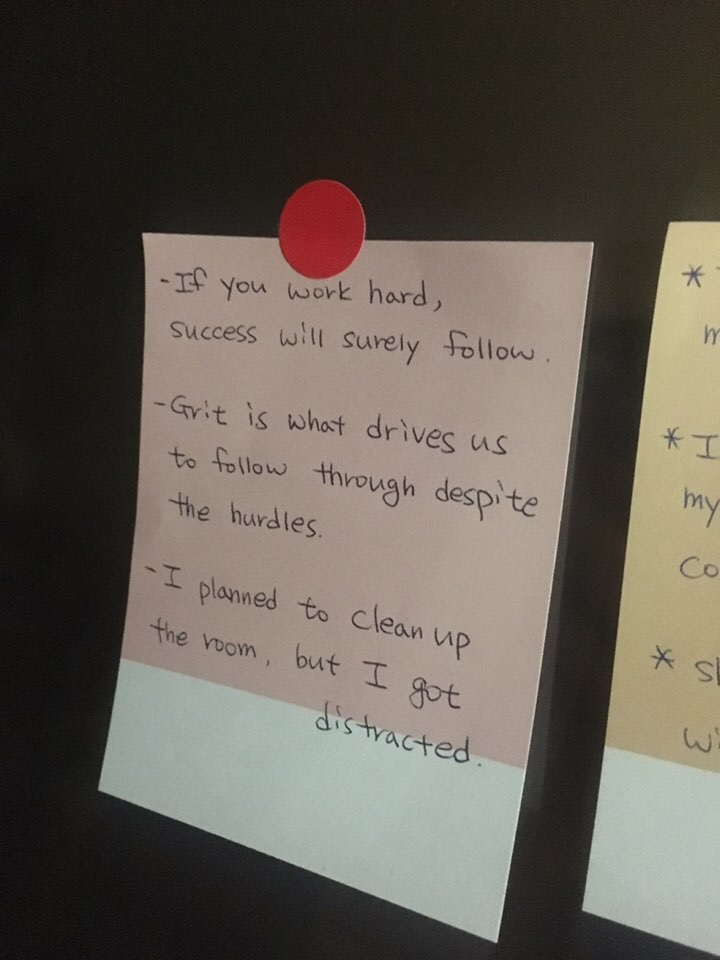 -If you work hard,
success will surely follow.
-Grit is what drives us
to follow through despite
the hurdles.
-I planned to clean up
the room, but I got
distracted.
*
m
* I
my
co
*
wi